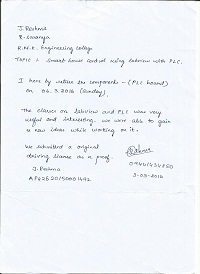 J. Reshma
R. Saranya
R.M.K. Engineering college
Topic : Smart house control using labview with PLC.
I here by return the components - (PLC board)
on 06.3.2016 (Sunday).
The classes on labview and PLC was very
useful and interesting. we were able to gain
a new idea while working on it.
We submitted a original
driving license as a proof.
J. Reshma